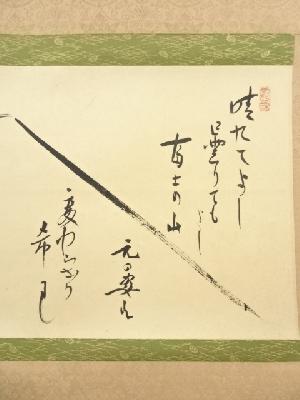 晴れてよし
曇りても
よし
富士の山
元の姿は
変わらざり
希里